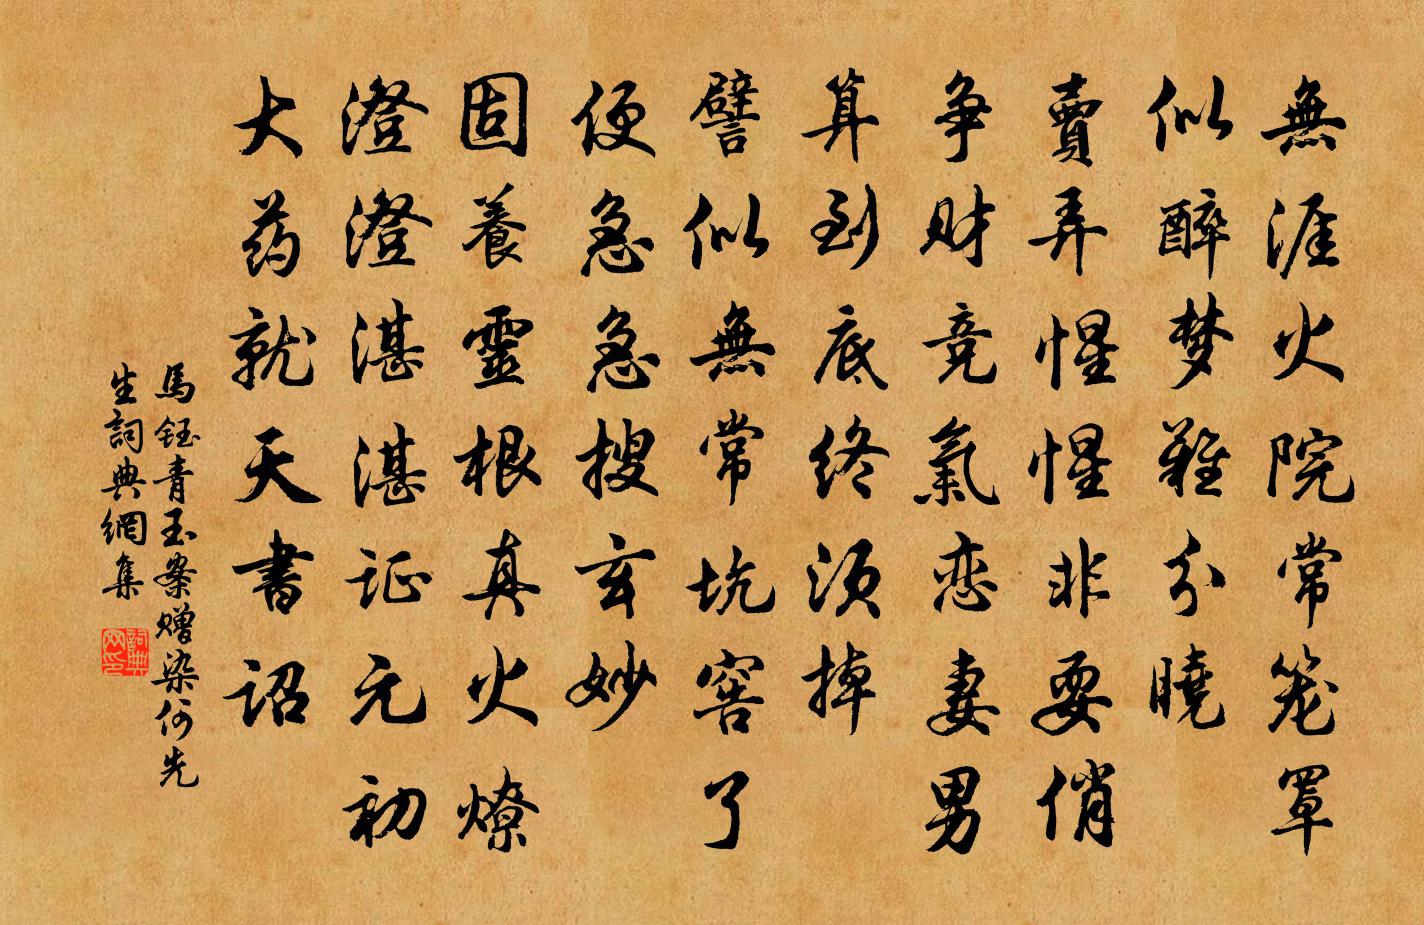 無涯火院常笼罩
似醉梦難分曉
賣弄惺惺非耍俏
争财竞氣恋妻男
算到底终须掉
譬似無常坑窖了
便急急搜玄妙
固養靈根真火燎
澄澄湛湛证元初
大药就天书诏
馬钰青玉案赠染何先
生詞典網集
詞典网印